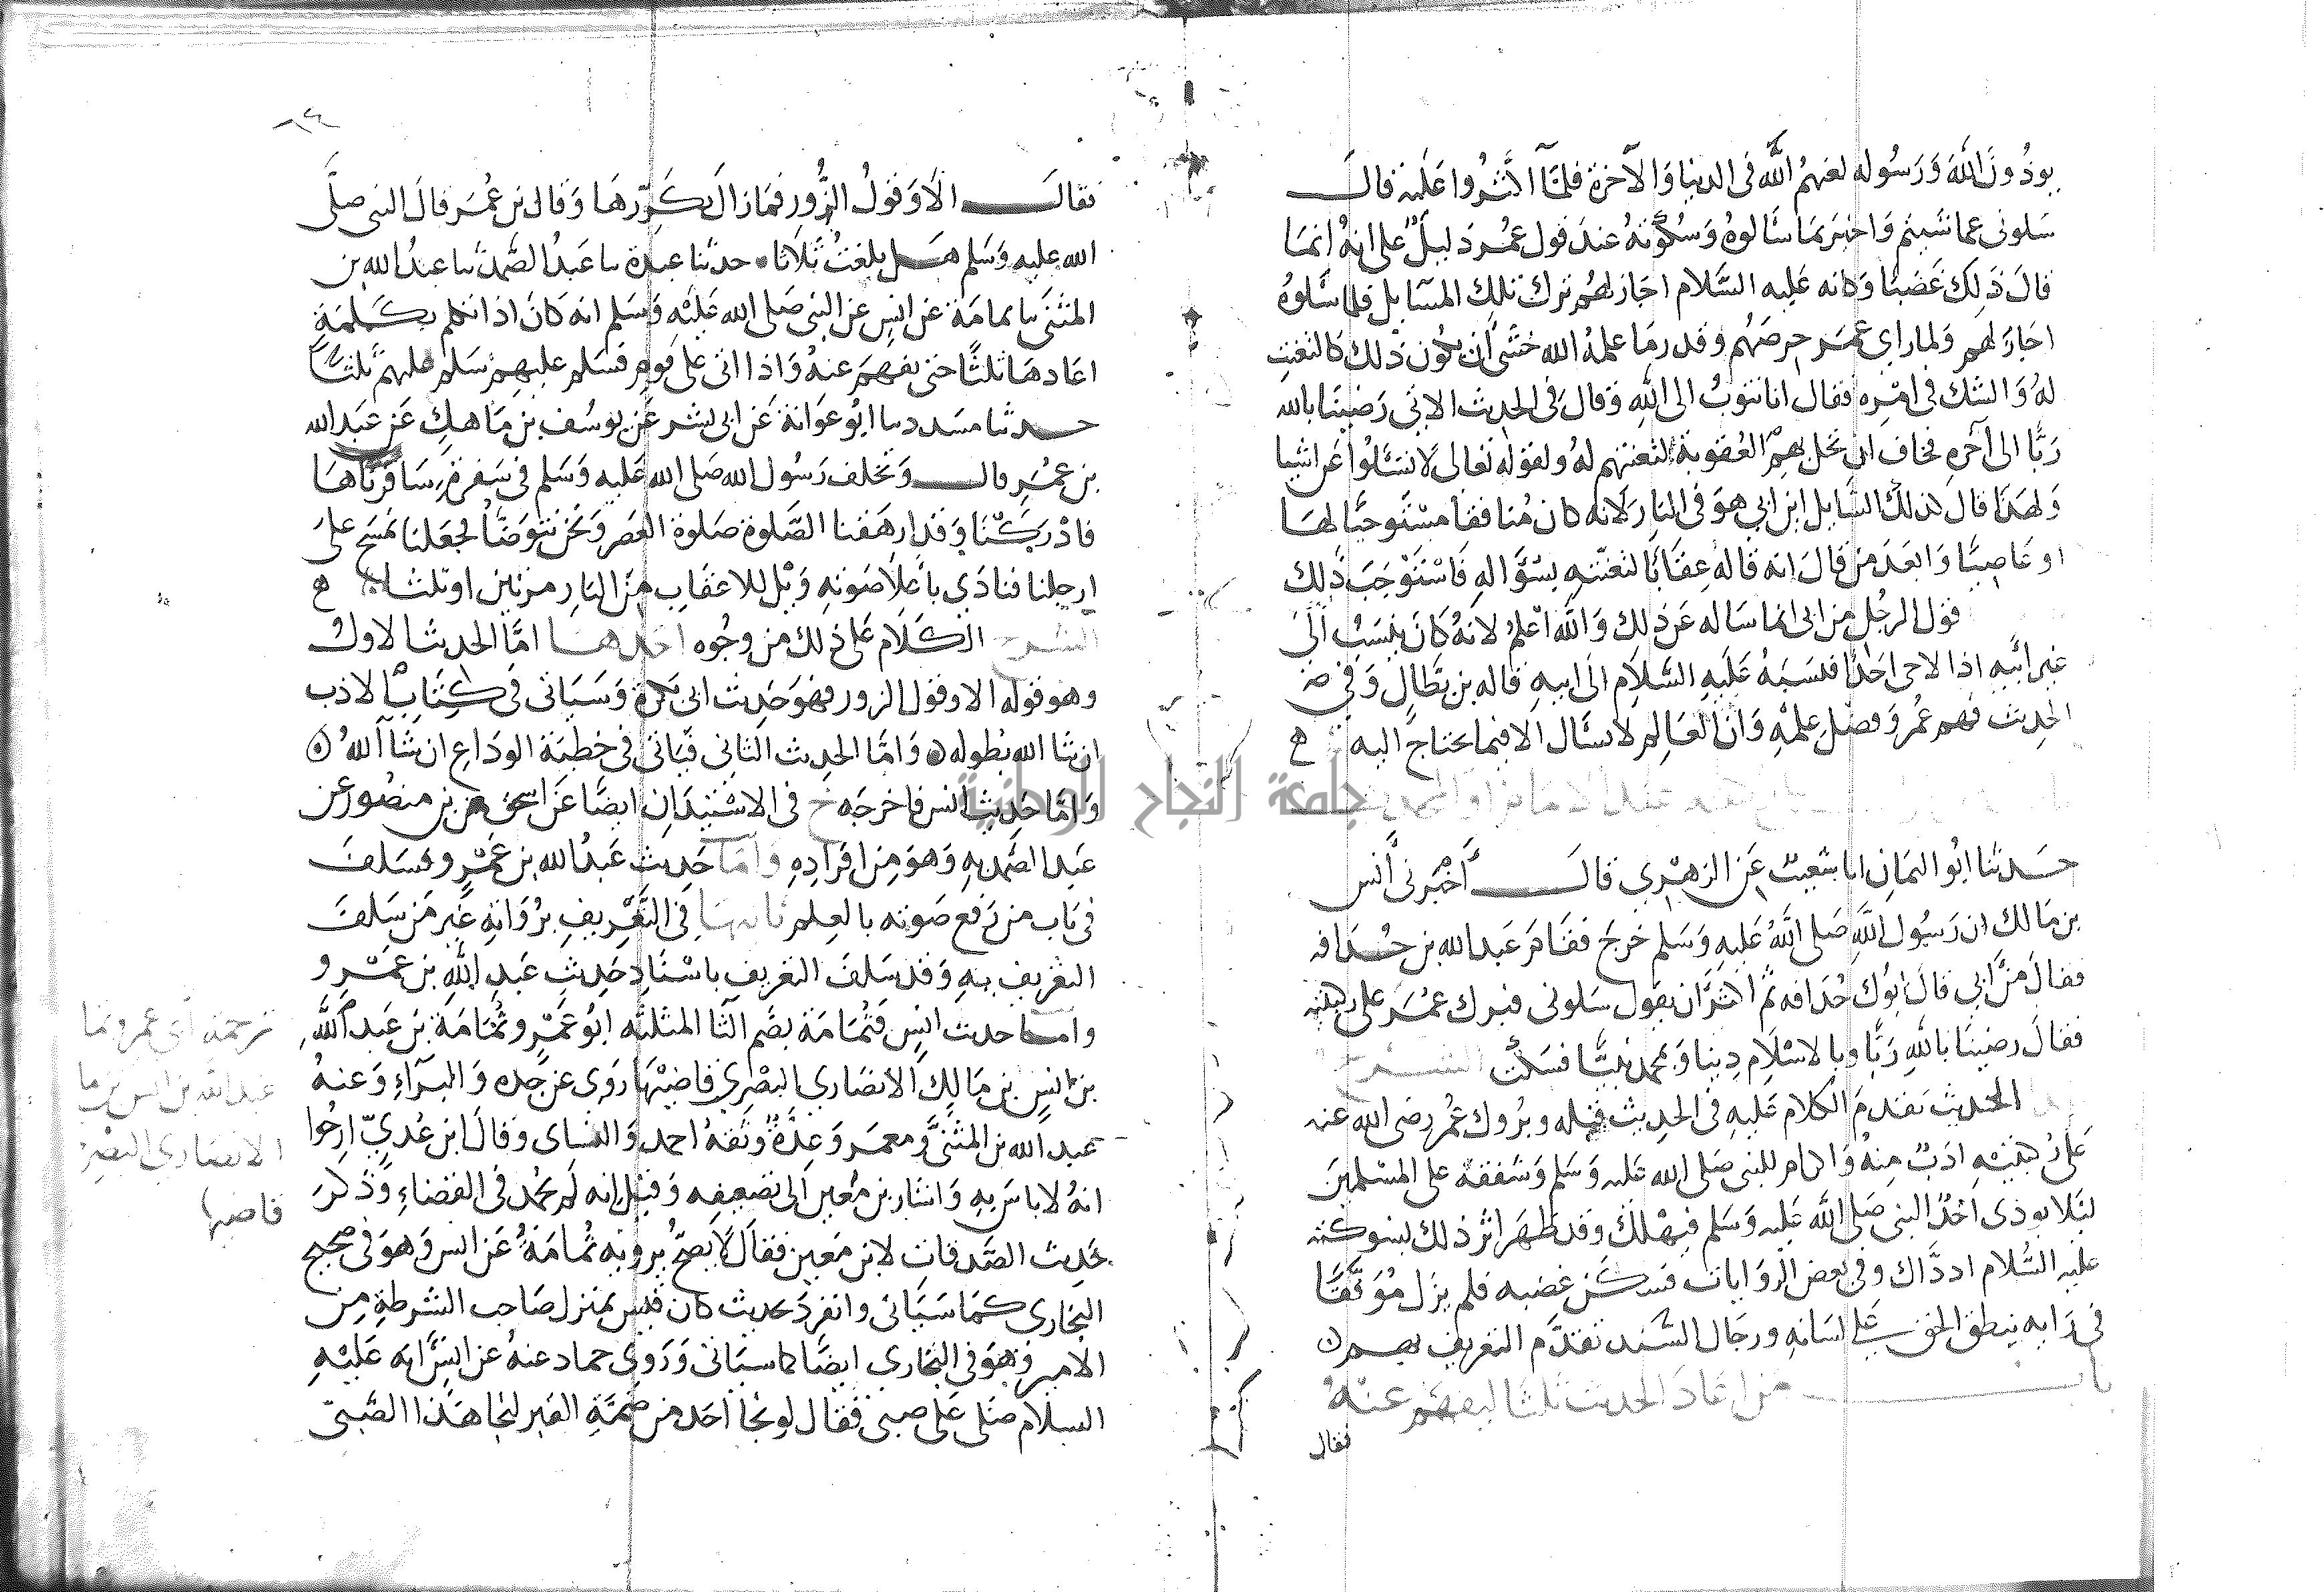 يوذون الله ورسوله لعنهم الله في الدنيا والآخرة فلما اكثروا عليه قال
سلوني عما شيتم واخبر بما سالوه وسكوته عند قول عمر دليل على انه انما
قال ذلك غضبا وكانه عليه السلام اجاز لهم ترك تلك المسايل فلما سالوه
اجاز لهم ولما راي عمر حرصهم وقدر ما علمه الله خشي أن يكون ذلك كالتعنت
له والشك في امره فقال انا نتوب الى الله وقال في الحديث الاتي رضينا بالله
ربا الى آخره فخاف ان تحل بهم العقوبة لتعنتهم له ولقوله تعالى لا تسئلوا عن اشيا
ولهذا قال لذلك السايل اين ابي هو في النار لانه كان منافقا مستوجبا لها
او عاصيا وابعد من قال انه قاله عقابا لتعنته بسؤاله فاستوجب ذلك
قول الرجل من ابي انما ساله عن ذلك والله اعلم لانه كان ينسب الى
غير ابيه اذا لاحى احدا فنسبه عليه السلام الى ابيه قاله بن بطال وفي
الحديث فهم عمر وفضل علمه وان العالم لا يسال الا فيما يحتاج اليه
حدثنا ابو اليمان انا شعيب عن الزهري قال أخبرني أنس
بن مالك ان رسول الله صلى الله عليه وسلم خرج فقام عبد الله بن حذافه
فقال من ابي قال ابوك حذافه ثم اكثر ان يقول سلوني فبرك عمر على ركبتيه
فقال رضينا بالله ربا وبالاسلام دينا وبمحمد نبيا فسكت الشرح
الحديث تقدم الكلام عليه في الحديث قبله وبروك عمر رضي الله عنه
على ركبتيه ادب منه واكرام للنبي صلى الله عليه وسلم وشفقة على المسلمين
ليلا يوذى احد النبي صلى الله عليه وسلم فيهلك وقد ظهر اثر ذلك بسكوته
عليه السلام اذ ذاك وفي بعض الروايات فسكن غضبه فلم يزل موفقا
في رايه ينطق الحق على لسانه ورجال السند تقدم التعريف بهم
باب من اعاد الحديث ثلثا ليفهم عنه
فقال
٦٤
فقال الا وقول الزور فمازال يكررها وقال بن عمر قال النبي صلى
الله عليه وسلم هل بلغت ثلاثا حدثنا عبدة نا عبد الصمد نا عبد الله بن
المثنى نا ثمامة عن انس عن النبي صلى الله عليه وسلم انه كان اذا تكلم بكلمة
اعادها ثلثا حتى يفهم عنه واذا اتى على قوم فسلم عليهم سلم عليهم ثلثا
حدثنا مسدد نا ابو عوانة عن ابي بشر عن يوسف بن ماهك عن عبد الله
بن عمرو قال تخلف رسول الله صلى الله عليه وسلم في سفرة سافرناها
فادركنا وقد ارهقنا الصلوة صلوة العصر ونحن نتوضأ فجعلنا نمسح على
ارجلنا فنادي بأعلا صوته ويل للاعقاب من النار مرتين او ثلثا
الشرح الكلام على ذلك من وجوه احدها اما الحديث الاول
وهو قوله الا وقول الزور فهو حديث ابي بكرة وسياتي في كتاب الادب
ان شا الله بطوله واما الحديث الثاني فياتي في خطبة الوداع ان شا الله
واما حديث انس فاخرجه خ في الاستيذان ايضا عن اسحق بن منصور عن
عبد الصمد به وهو من افراده واما حديث عبد الله بن عمرو فسلف
في باب من رفع صوته بالعلم ثانيها في التعريف برواته غير من سلف
التعريف به وقد سلف التعريف باسناد حديث عبد الله بن عمرو
واما حديث انس فثمامة بضم الثا المثلثه ابو عمرو ثمامة بن عبد الله
بن انس بن مالك الانصاري البصري قاضيها روى عن جده والبرآء وعنه
عبد الله بن المثنى ومعمر وعدة وثقه احمد والنساي وقال ابن عدي ارجوا
انه لا باس به واشار بن معين الى تضعيفه وقيل انه لم يحمد في القضاء وذكر
حديث الصدقات لابن معين فقال لا يصح يرويه ثمامة عن انس وهو في صحيح
البخاري كما سياتي وانفرد بحديث كان قيس بمنزل صاحب الشرطة من
الامير وهو في البخاري ايضا كما سياتي وروى حماد عنه عن انس انه عليه
السلام صلى على صبي فقال لو نجا احد من ضمة القبر لنجا هذا الصبي
ترجمة أبي عمرو ثما
عبد الله بن انس بن ما
الانصاري البصري
قاضيها
جامعة النجاح الوطنية